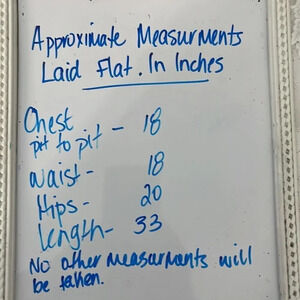 Approximate Measurments
Laid Flat. In Inches
Chest
pit to pit - 18
waist - 18
Hips - 20
Length - 33
No other measurments will
be taken.